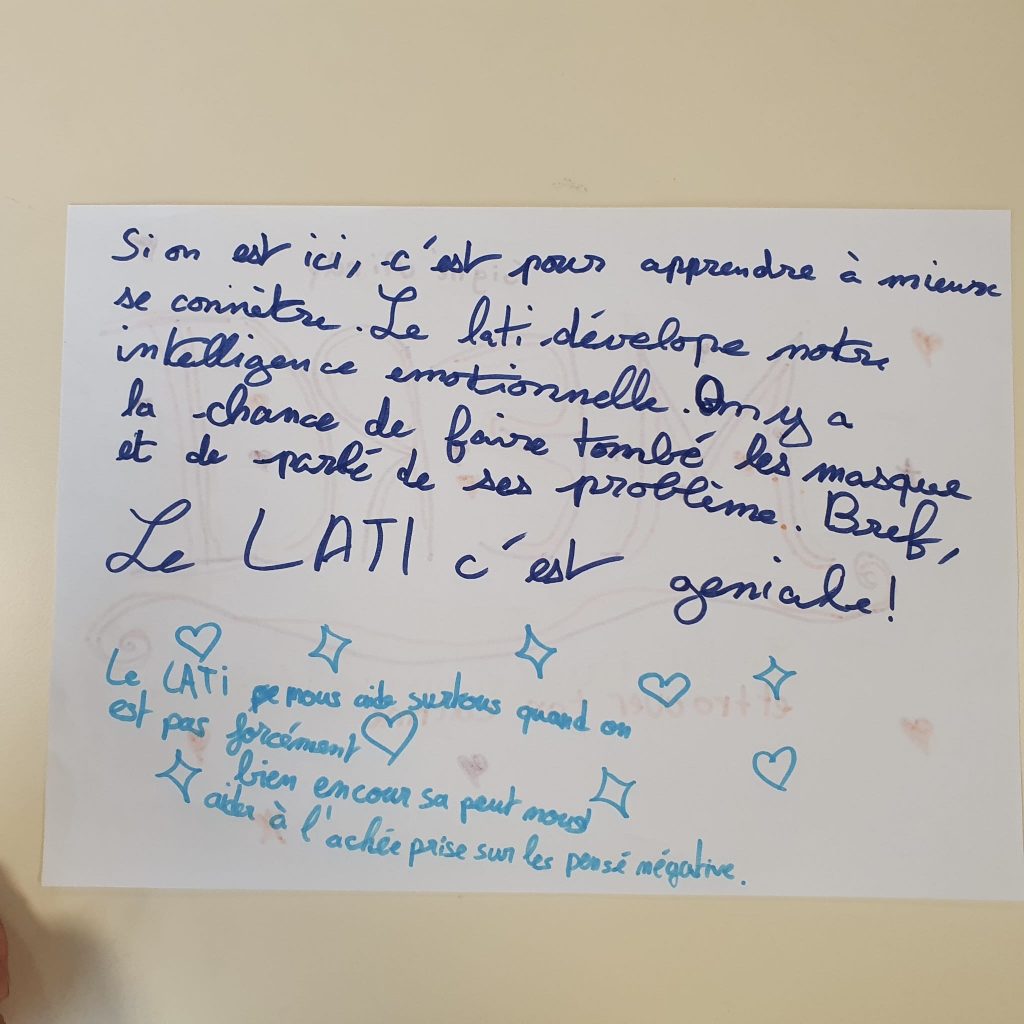 Si on est ici, c'est pour apprendre à mieux
se connètre. Le lati dévelope notre
intelligence emotionnelle. On y a
la chance de faire tombé les masque
et de parlé de ses problème. Bref,
Le LATI c'est geniale!
Le LATi nous aide surtous quand on
est pas forcément
bien encour sa peut nous
aider à l'achée prise sur les pensé négative.